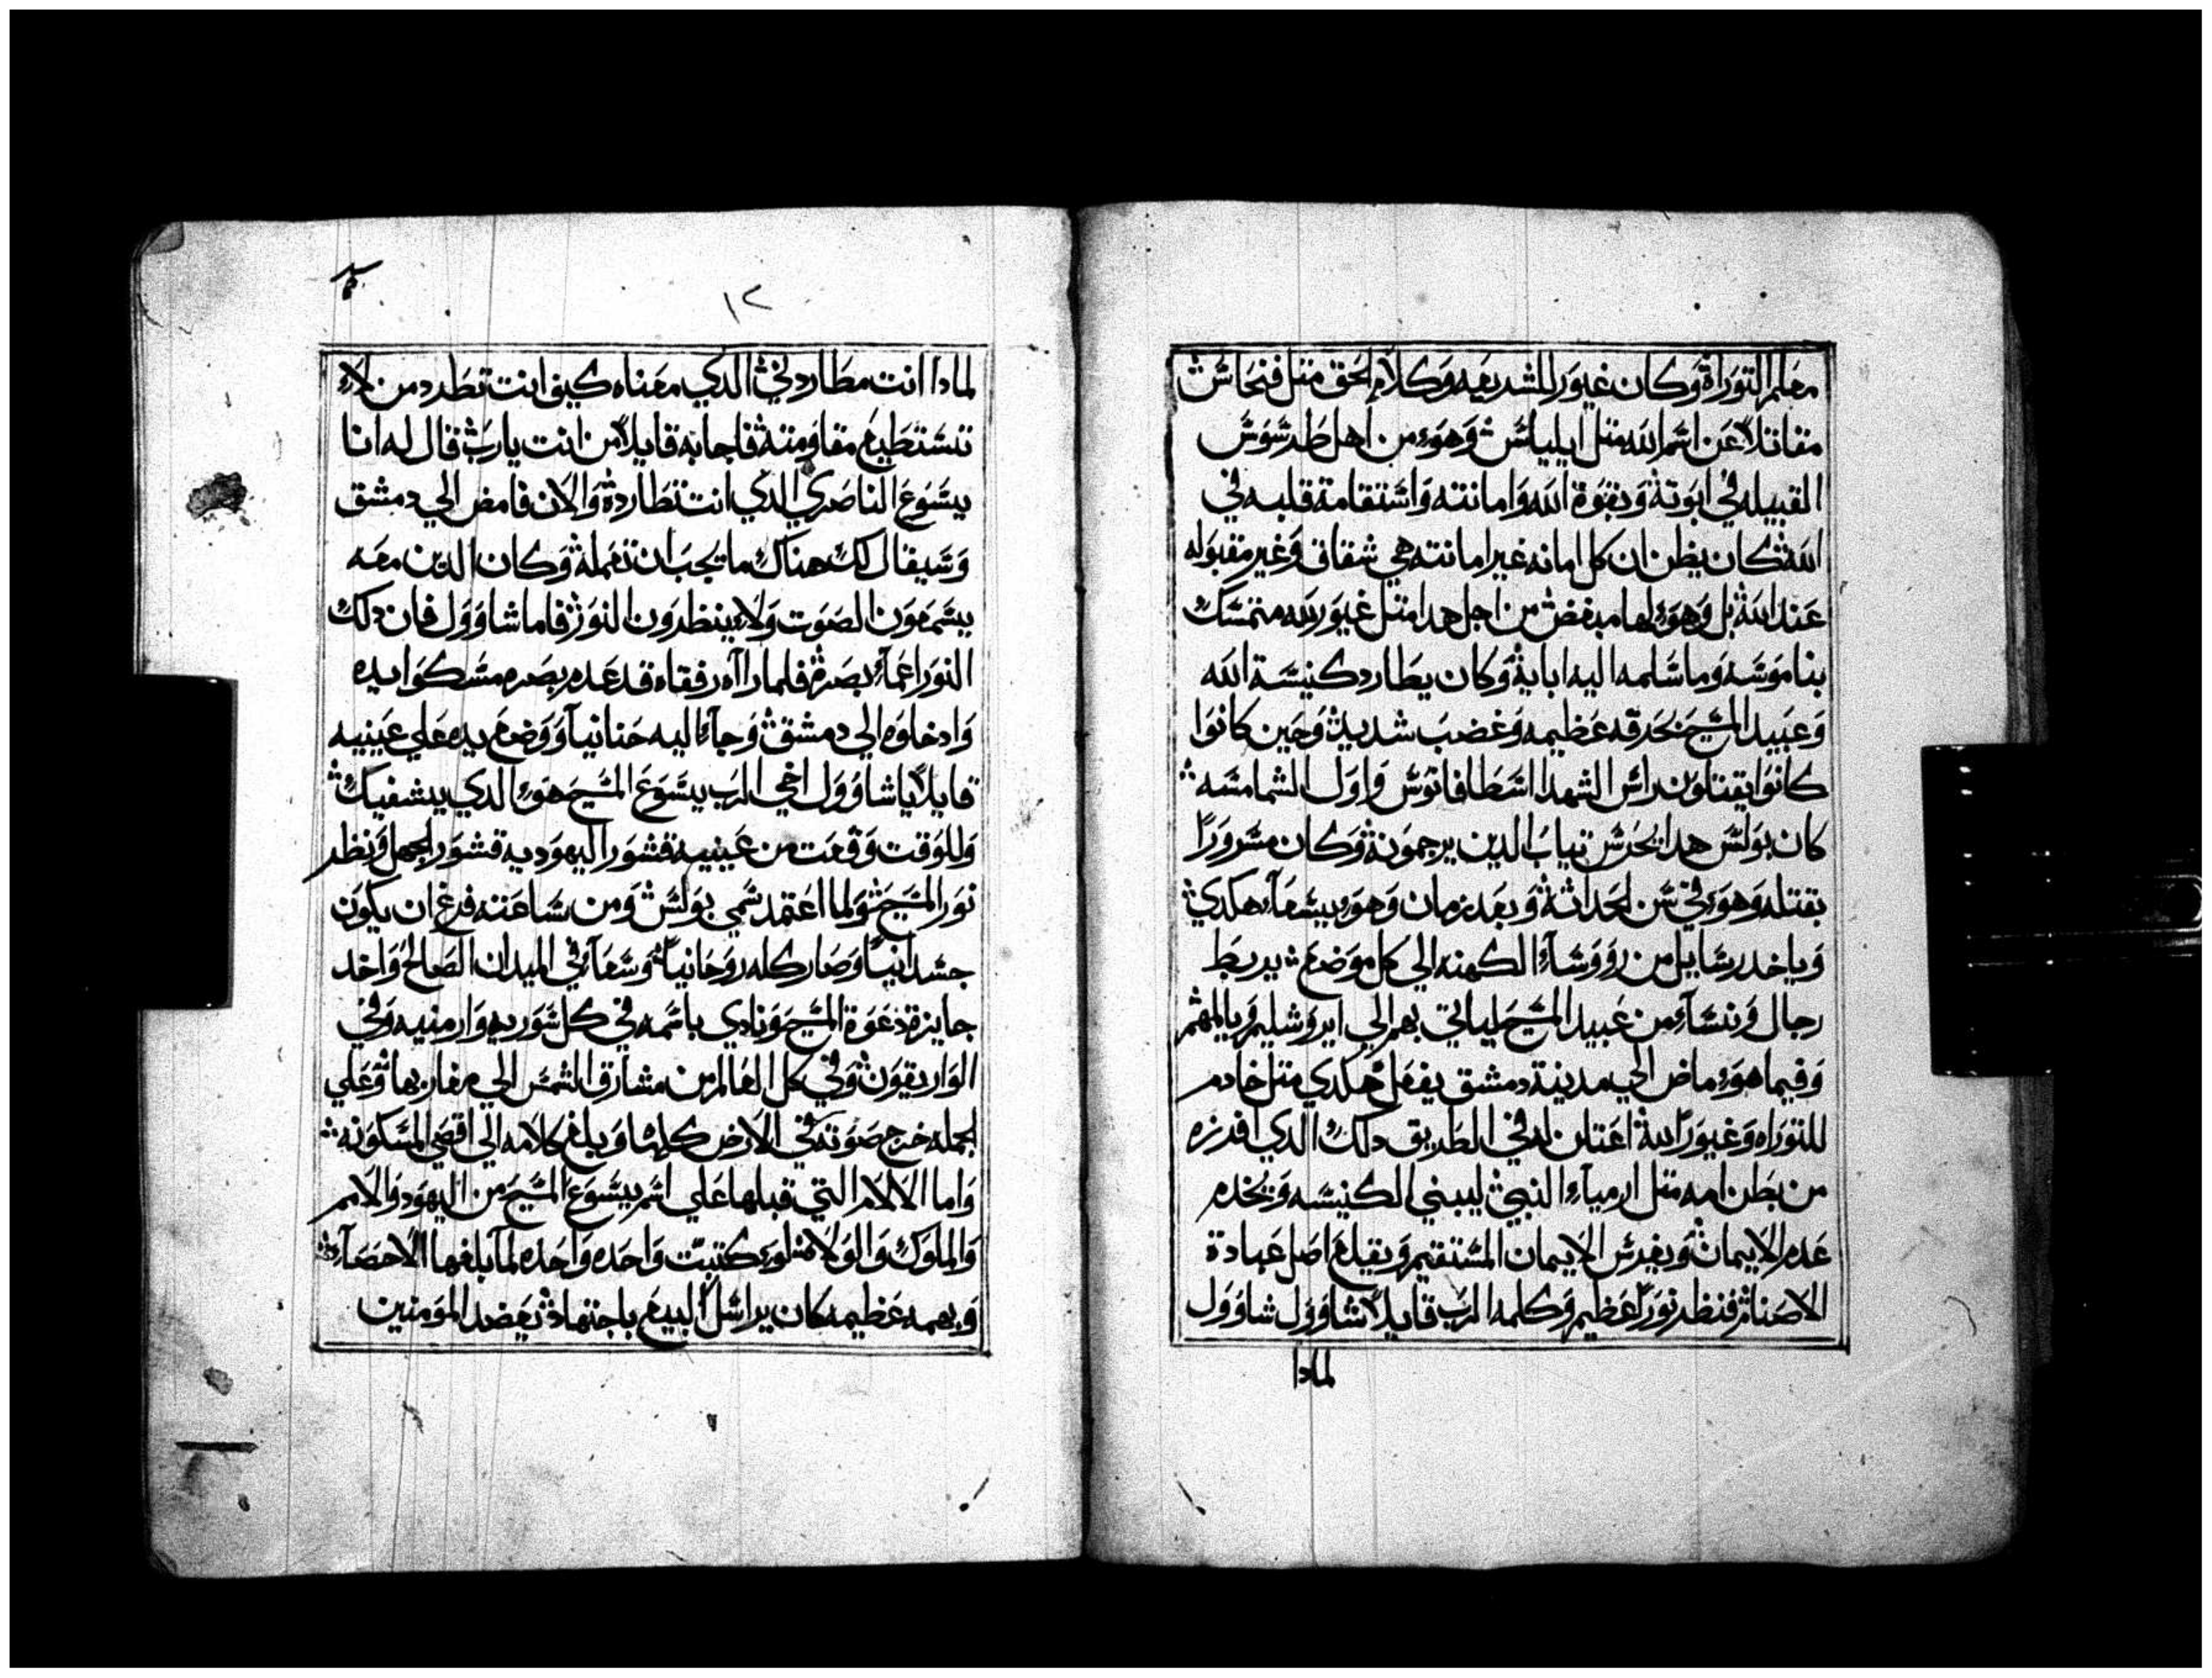 معلم التوراة وكان غيور للشريعه وكلام الحق متل فنحاش
مقاتلاً عن اسم الله متل ايلياش وهوء من اهل طرشوش
القبيله في ابوته وبقوة الله وامانته واشتقامة قلبه في
الله كان يظن ان كل امانه غير امانته هي شقاق وغير مقبوله
عند الله بل وهوء لها مبغض من اجل هدا متل غيور لله متمشك
بناموشه وما شلمه اليه ابايه وكان يطارد كنيشة الله
وعبيد المشيح بحرقه عظيمه وغضب شديد وحين كانوا
كانوا يقتلون راش الشهدا اشطافانوش واول الشمامشه
كان بولش هدا يحرش تياب الدين يرجمونه وكان مشروراً
بقتله وهوء في شن الحداثه وبعد زمان وهوء يشعاء هكدي
وياخد رشايل من رووشاء الكهنه الي كل موضع يربط
رجال ونشاء من عبيد المشيح لياتي بهم الي ايروشليم ويالمهم
وفيما هوء ماض الي مدينة دمشق يفعل هكدي متل خادم
للتوراه وغيوراً لله اعتلن له في الطريق دلك الدي افرزه
من بطن امه متل ارمياء النبي ليبني الكنيشه ويخدم
عدم الايمان ويغرش الايمان المشتقيم ويقلع اصل عبادة
الاصنام فنظر نوراً عظيم وكلمه الرب قايلاً شاوول شاوول
لمادا
١٢
لمادا انت مطاردني الدي معناه كيف انت تطرد من لاء
تشتطيع مقاومته فاجابه قايلاً من انت يارب فقال له انا
يشوع الناصري الدي انت تطارده والان فامض الي دمشق
وشيقال لك هناك ما يجب ان تعمله وكان الدين معه
يشمعون الصوت ولاء ينظرون النور فاما شاوول فان دلك
النور اعماء بصره فلما رااه رفقاه قد عدم بصره مشكوا يده
وادخلوه الي دمشق وجاء اليه حنانيا ووضع يده علي عينيه
قايلاً يا شاوول اخي الرب يشوع المشيح هوء الدي يشفيك
وللوقت وقعت من عينيه قشور اليهوديه قشور الجهل ونظر
نور المشيح ولما اعتمد شمي بولش ومن شاعته فرغ ان يكون
جشدانياً وصار كله روحانياً وشعاء في الميدان الصالح واخد
جايزة دعوة المشيح ونادي باشمه في كل شوريه وارمنيه وفي
الواريقون وفي كل العالم من مشارق الشمش الي مغاربها وعلي
الجمله خرج صوته في الارض كلها وبلغ كلامه الي اقصي المشكونه
واما الالام التي قبلها علي اشم يشوع المشيح من اليهود والامم
والملوك والولاه فلوء كتبت واحده واحده لما بلغها الاحصاء
وبهمه عظيمه كان يراشل البيع باجتهاد يعضد المومنين